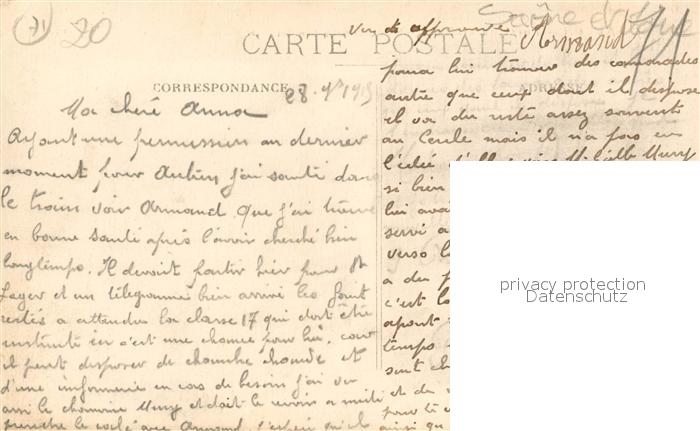 71
20
Saône et Loire
Vu et approuvé Armand
CARTE POSTALE
CORRESPONDANCE
ADRESSE
28. 9bre 1915
Ma chère Anna
Ayant une permission au dernier
moment pour Autun j'ai sauté dans
le train voir Armand que j'ai trouvé
en bonne santé après l'avoir cherché bien
longtemps. Il devait partir hier pour St
Leger et un télégramme bien arrivé les font
restés a attendre la classe 17 qui doit être
instruite ici c'est une chance pour lui, car
il peut disposer de chambre chaude et
d'une infirmerie en cas de besoin j'ai vu
aussi le chanoine Mury et doit le revoir a midi
prendre le café avec Armand
pour lui trouver des camarades
autre que ceux dont il dispose
il va du reste assez souvent
au Cercle mais il n'a pas eu
l'idée d'aller voir
si bien
lui avai
servi a
verso la
a du
c'est la
apont
temps
sont ch
et du
pour te
ainsi qu
privacy protection
Datenschutz